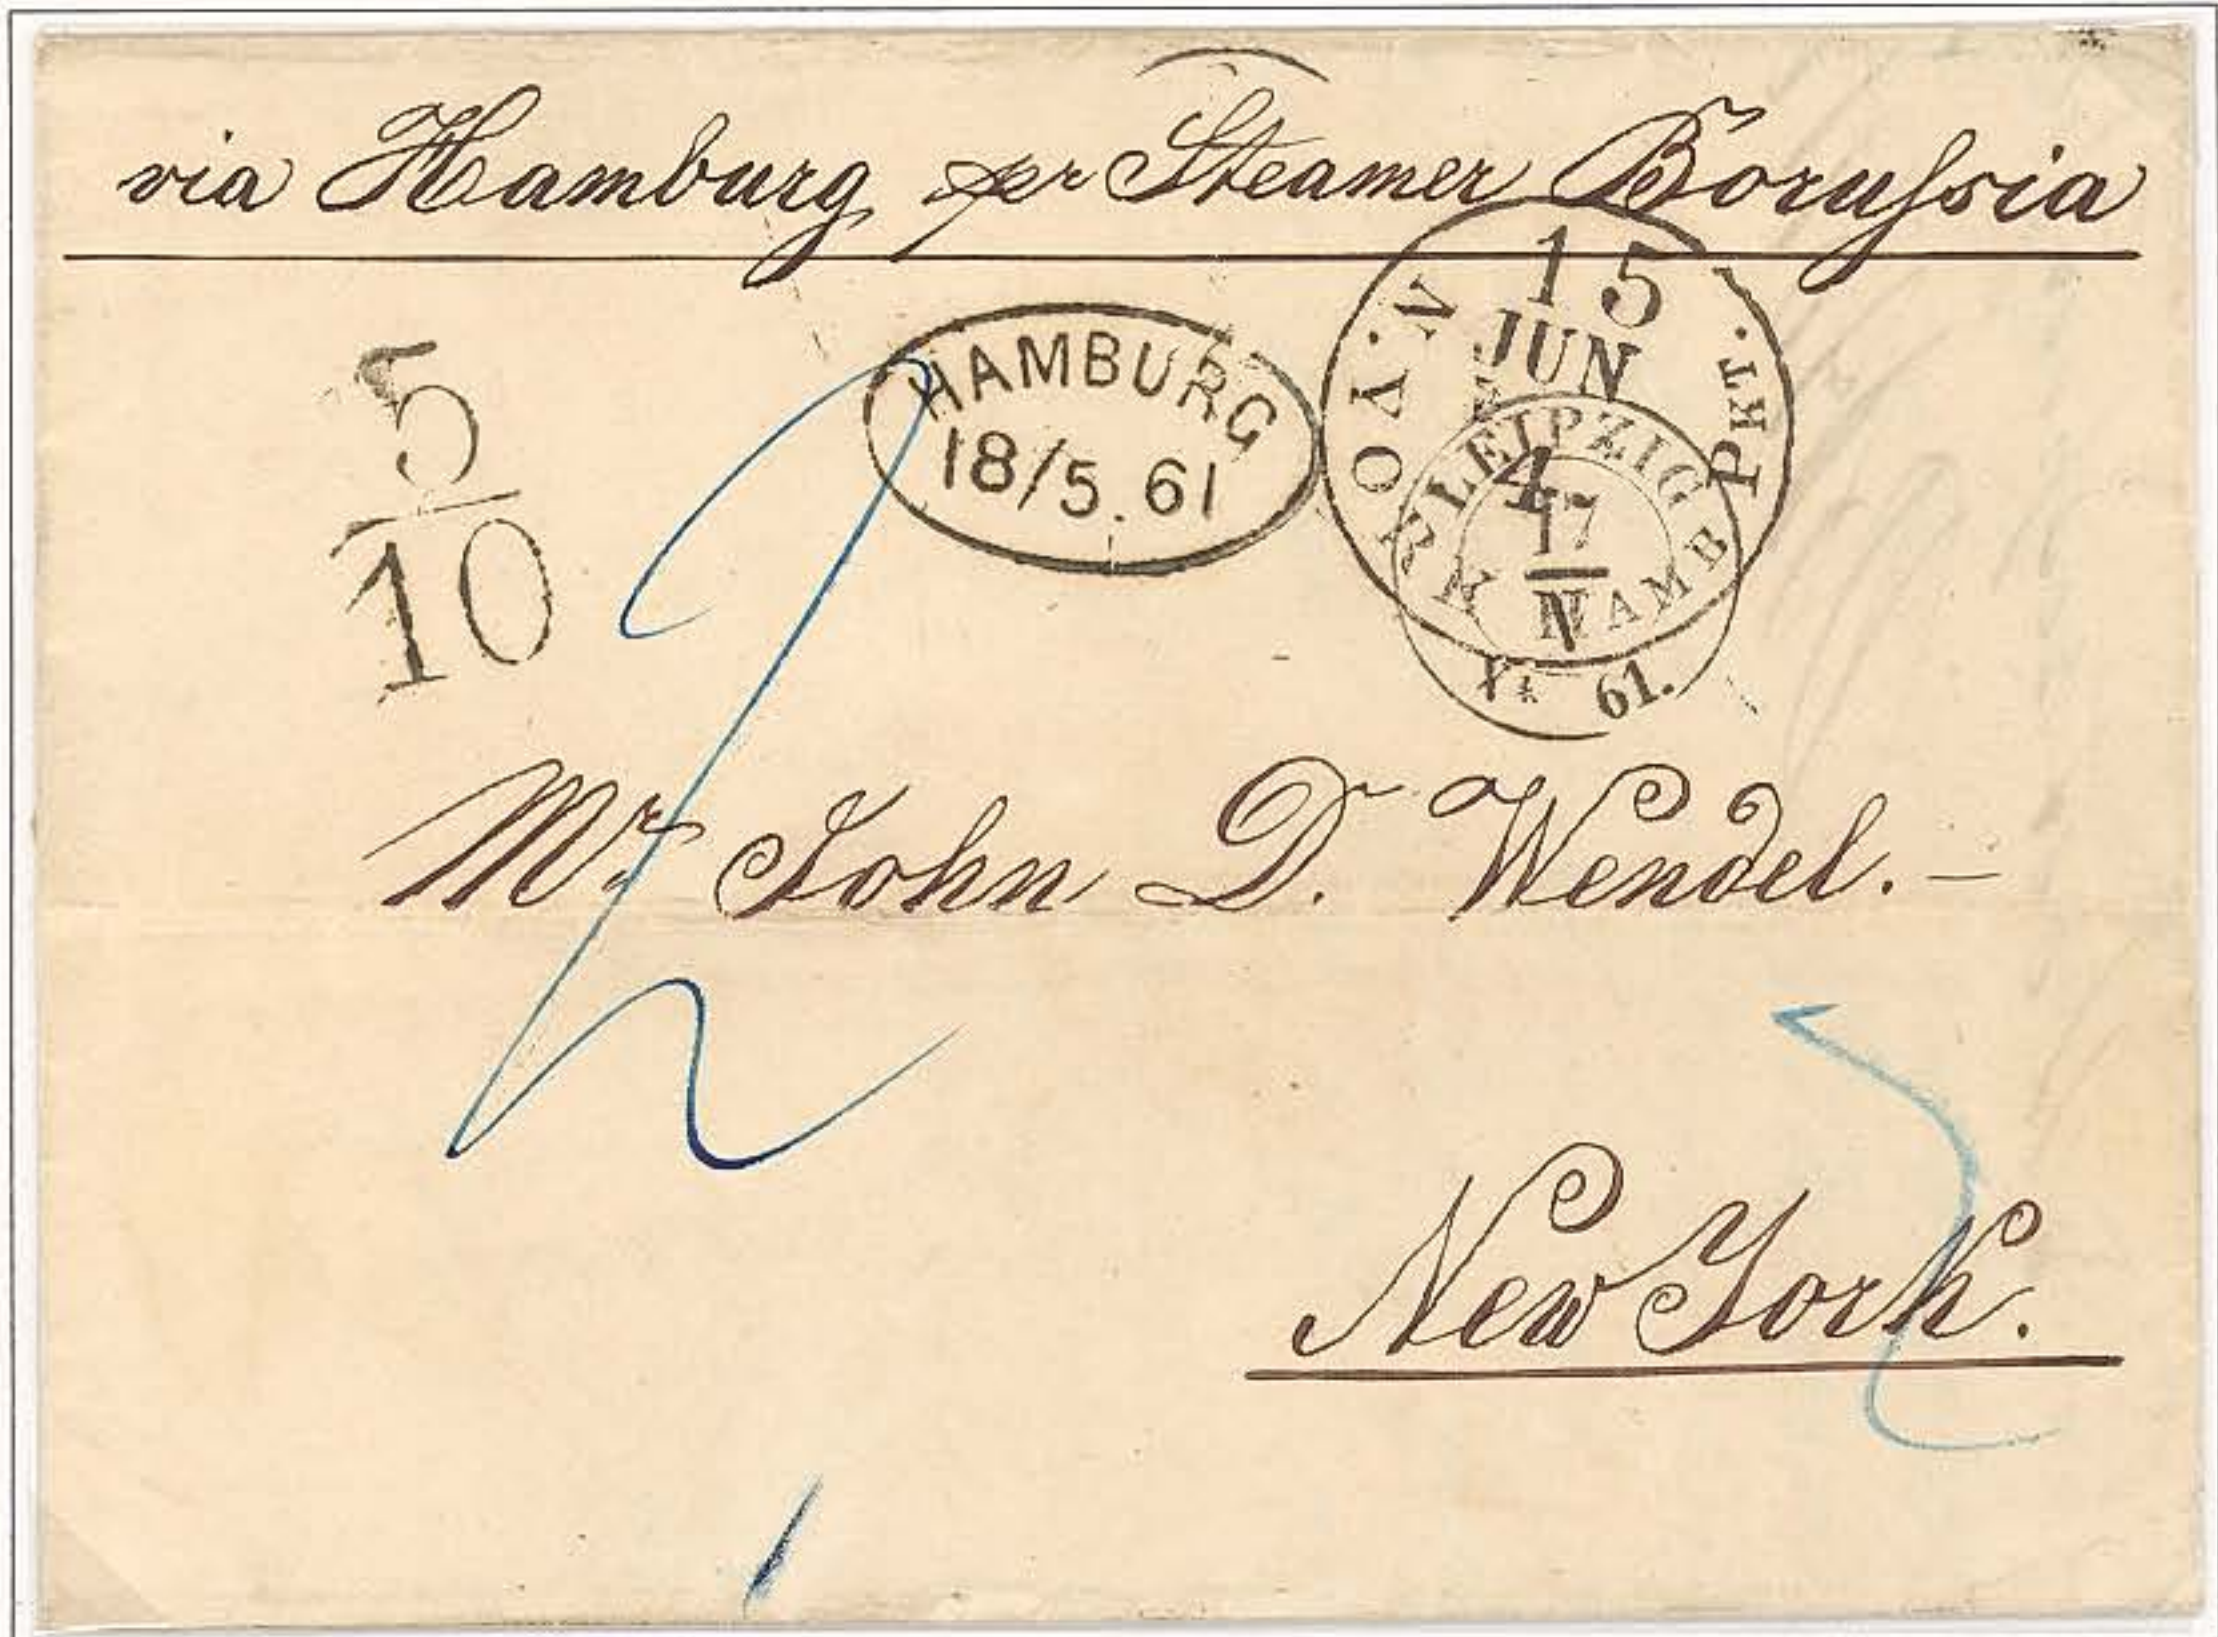 via Hamburg per Steamer Borussia
HAMBURG
18/5.61
N. YORK HAMB PKT.
15
JUN
LEIPZIG
17
V
61.
5
10
Mr John D. Wendel. –
New York.